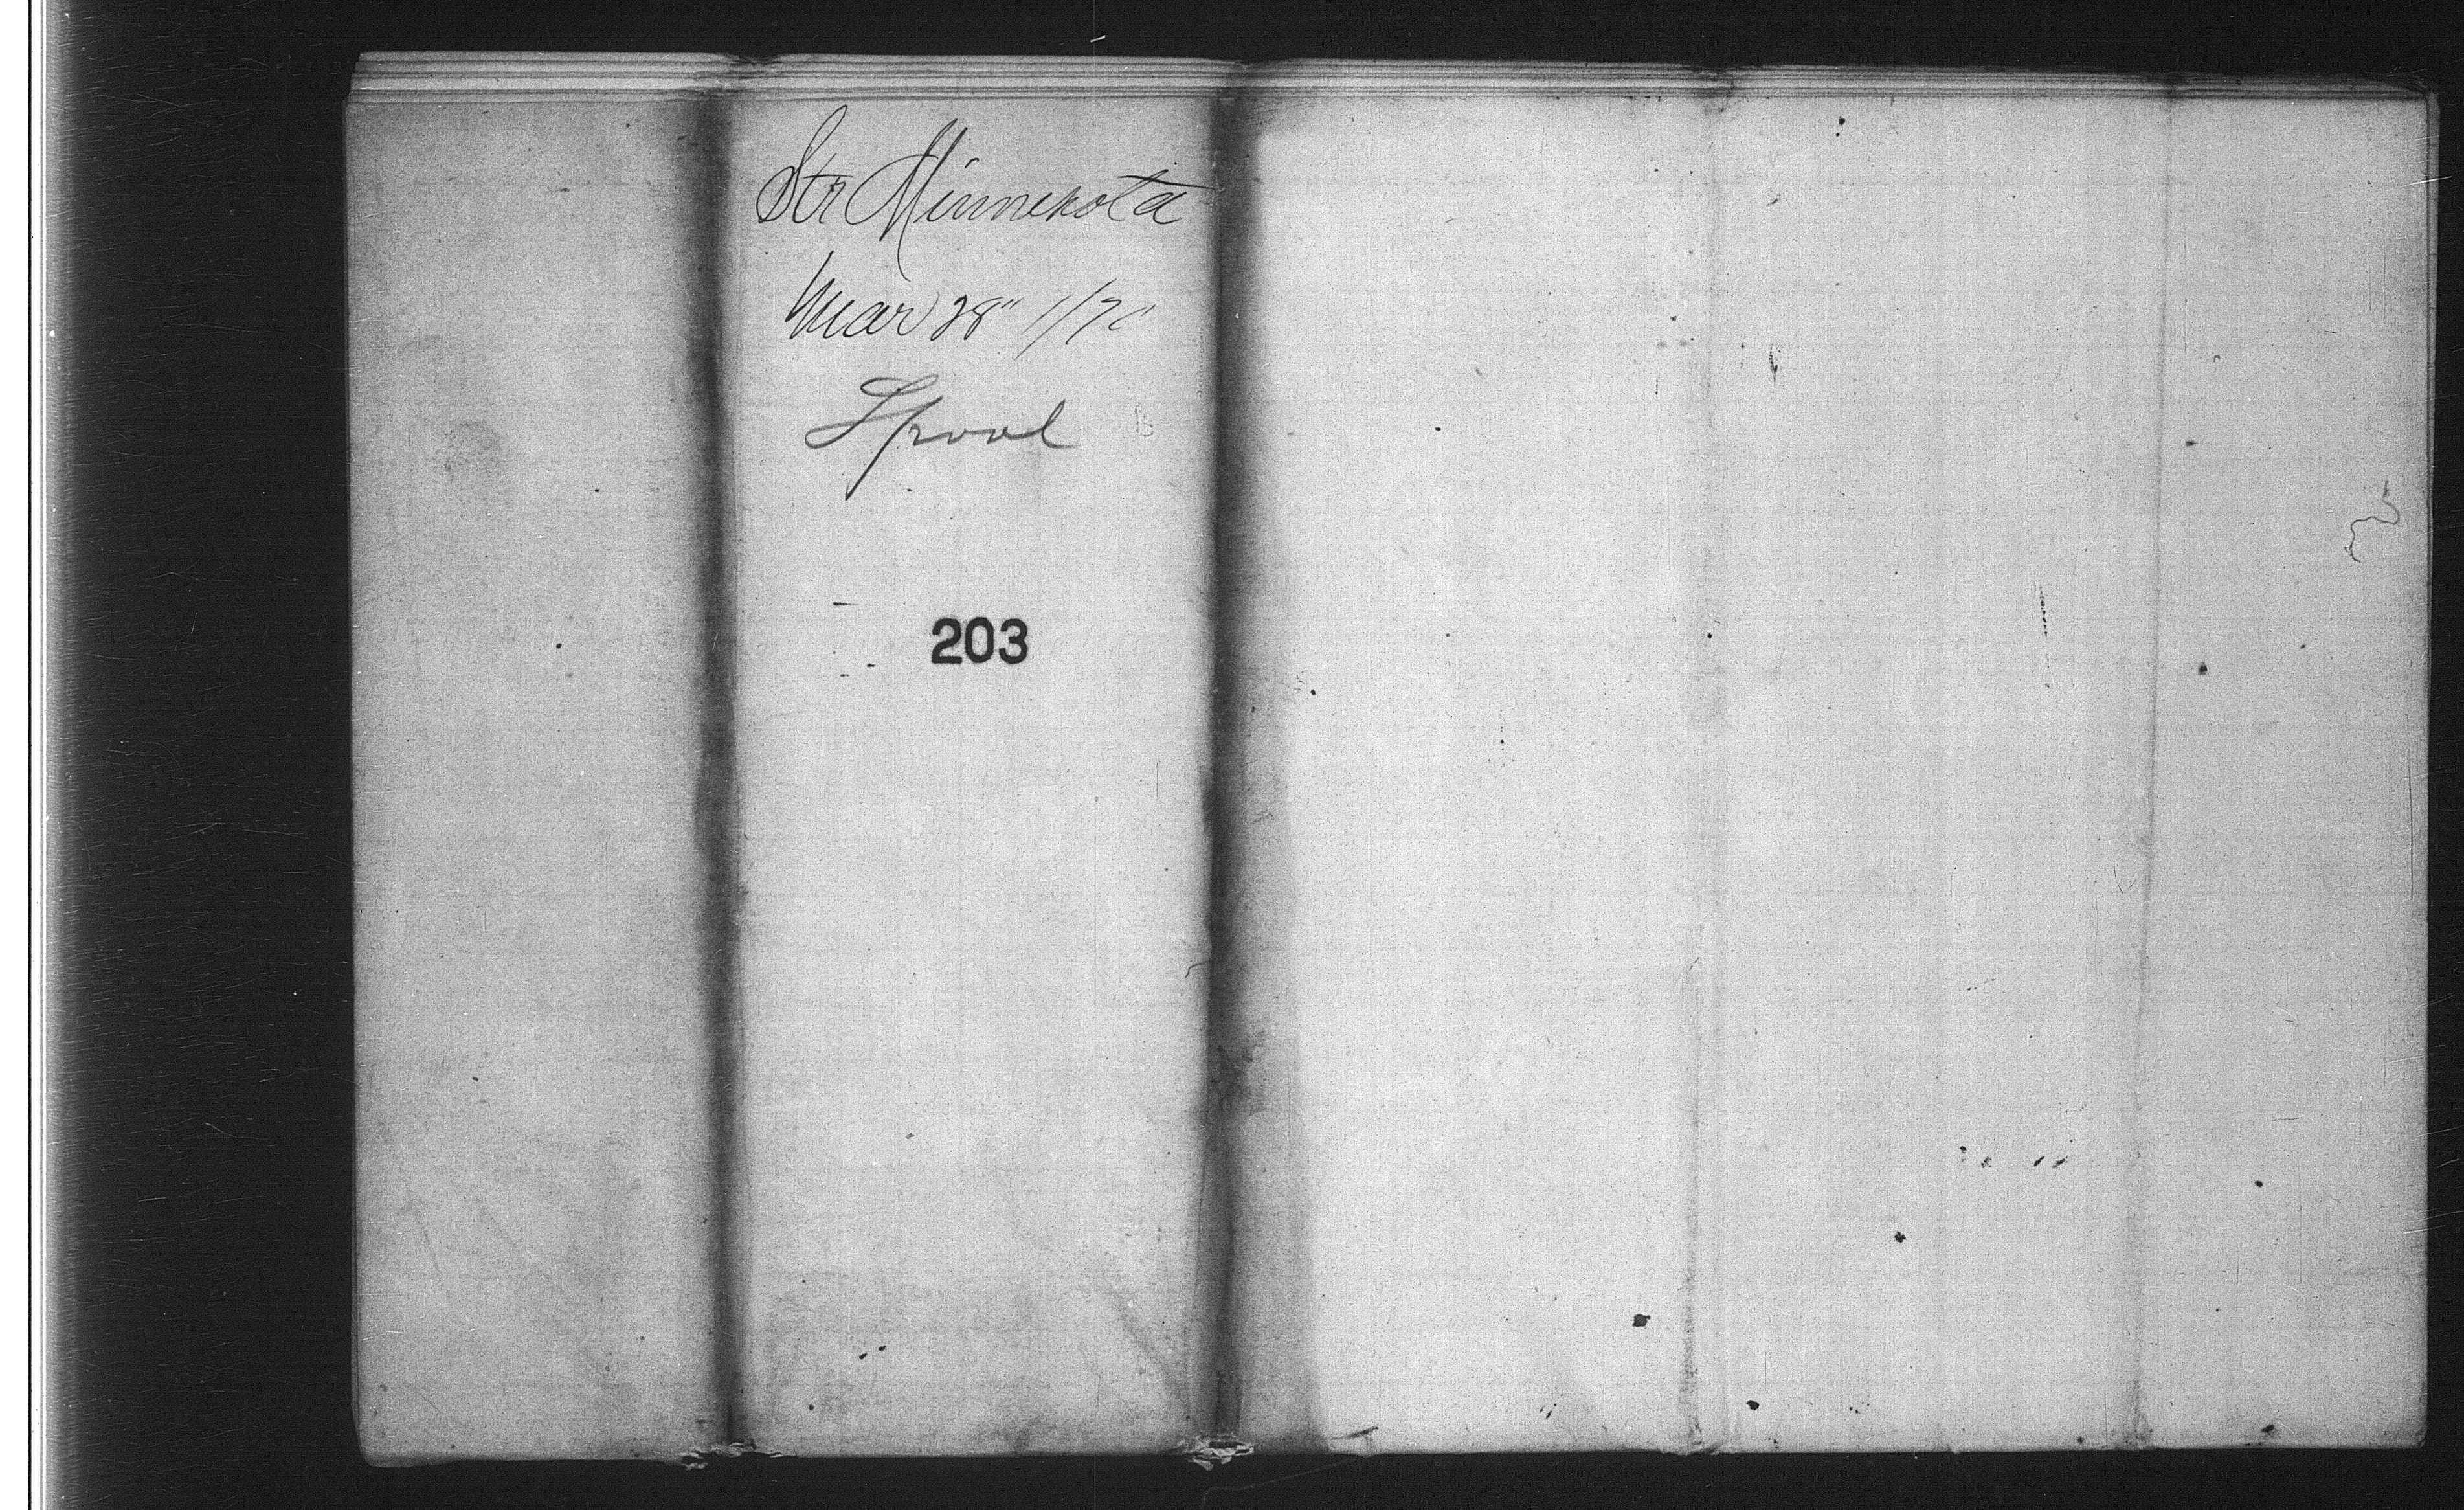 Str Minnesota
Mar 28" 1/70
Lpool
203